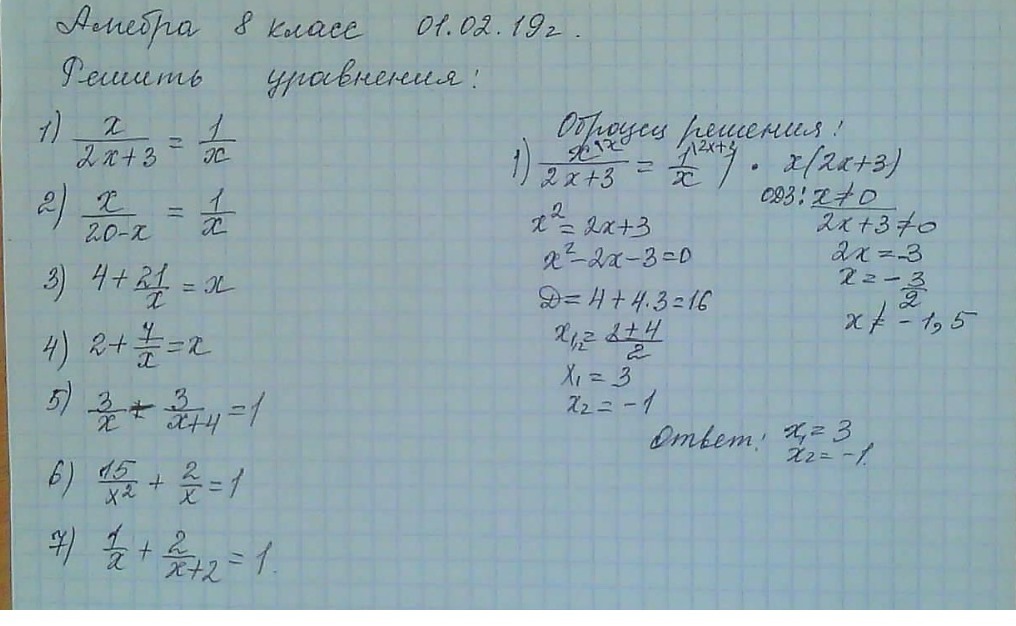 Алгебра 8 класс 01.02.19г.
Решить уравнения:
1) x/(2x+3) = 1/x
2) x/(20-x) = 1/x
3) 4 + 21/x = x
4) 2 + 7/x = x
6) 15/x² + 2/x = 1
7) 1/x + 2/(x+2) = 1.
Образец решения!
1) x\x/(2x+3) = 1\2x+3/x | · x(2x+3)
ОДЗ: x≠0
2x+3≠0
2x=-3
x=-3/2
x≠-1,5
x²=2x+3
x²-2x-3=0
D=4+4·3=16
x₁,₂=(2±4)/2
x₁=3
x₂=-1
Ответ: x₁=3
x₂=-1.